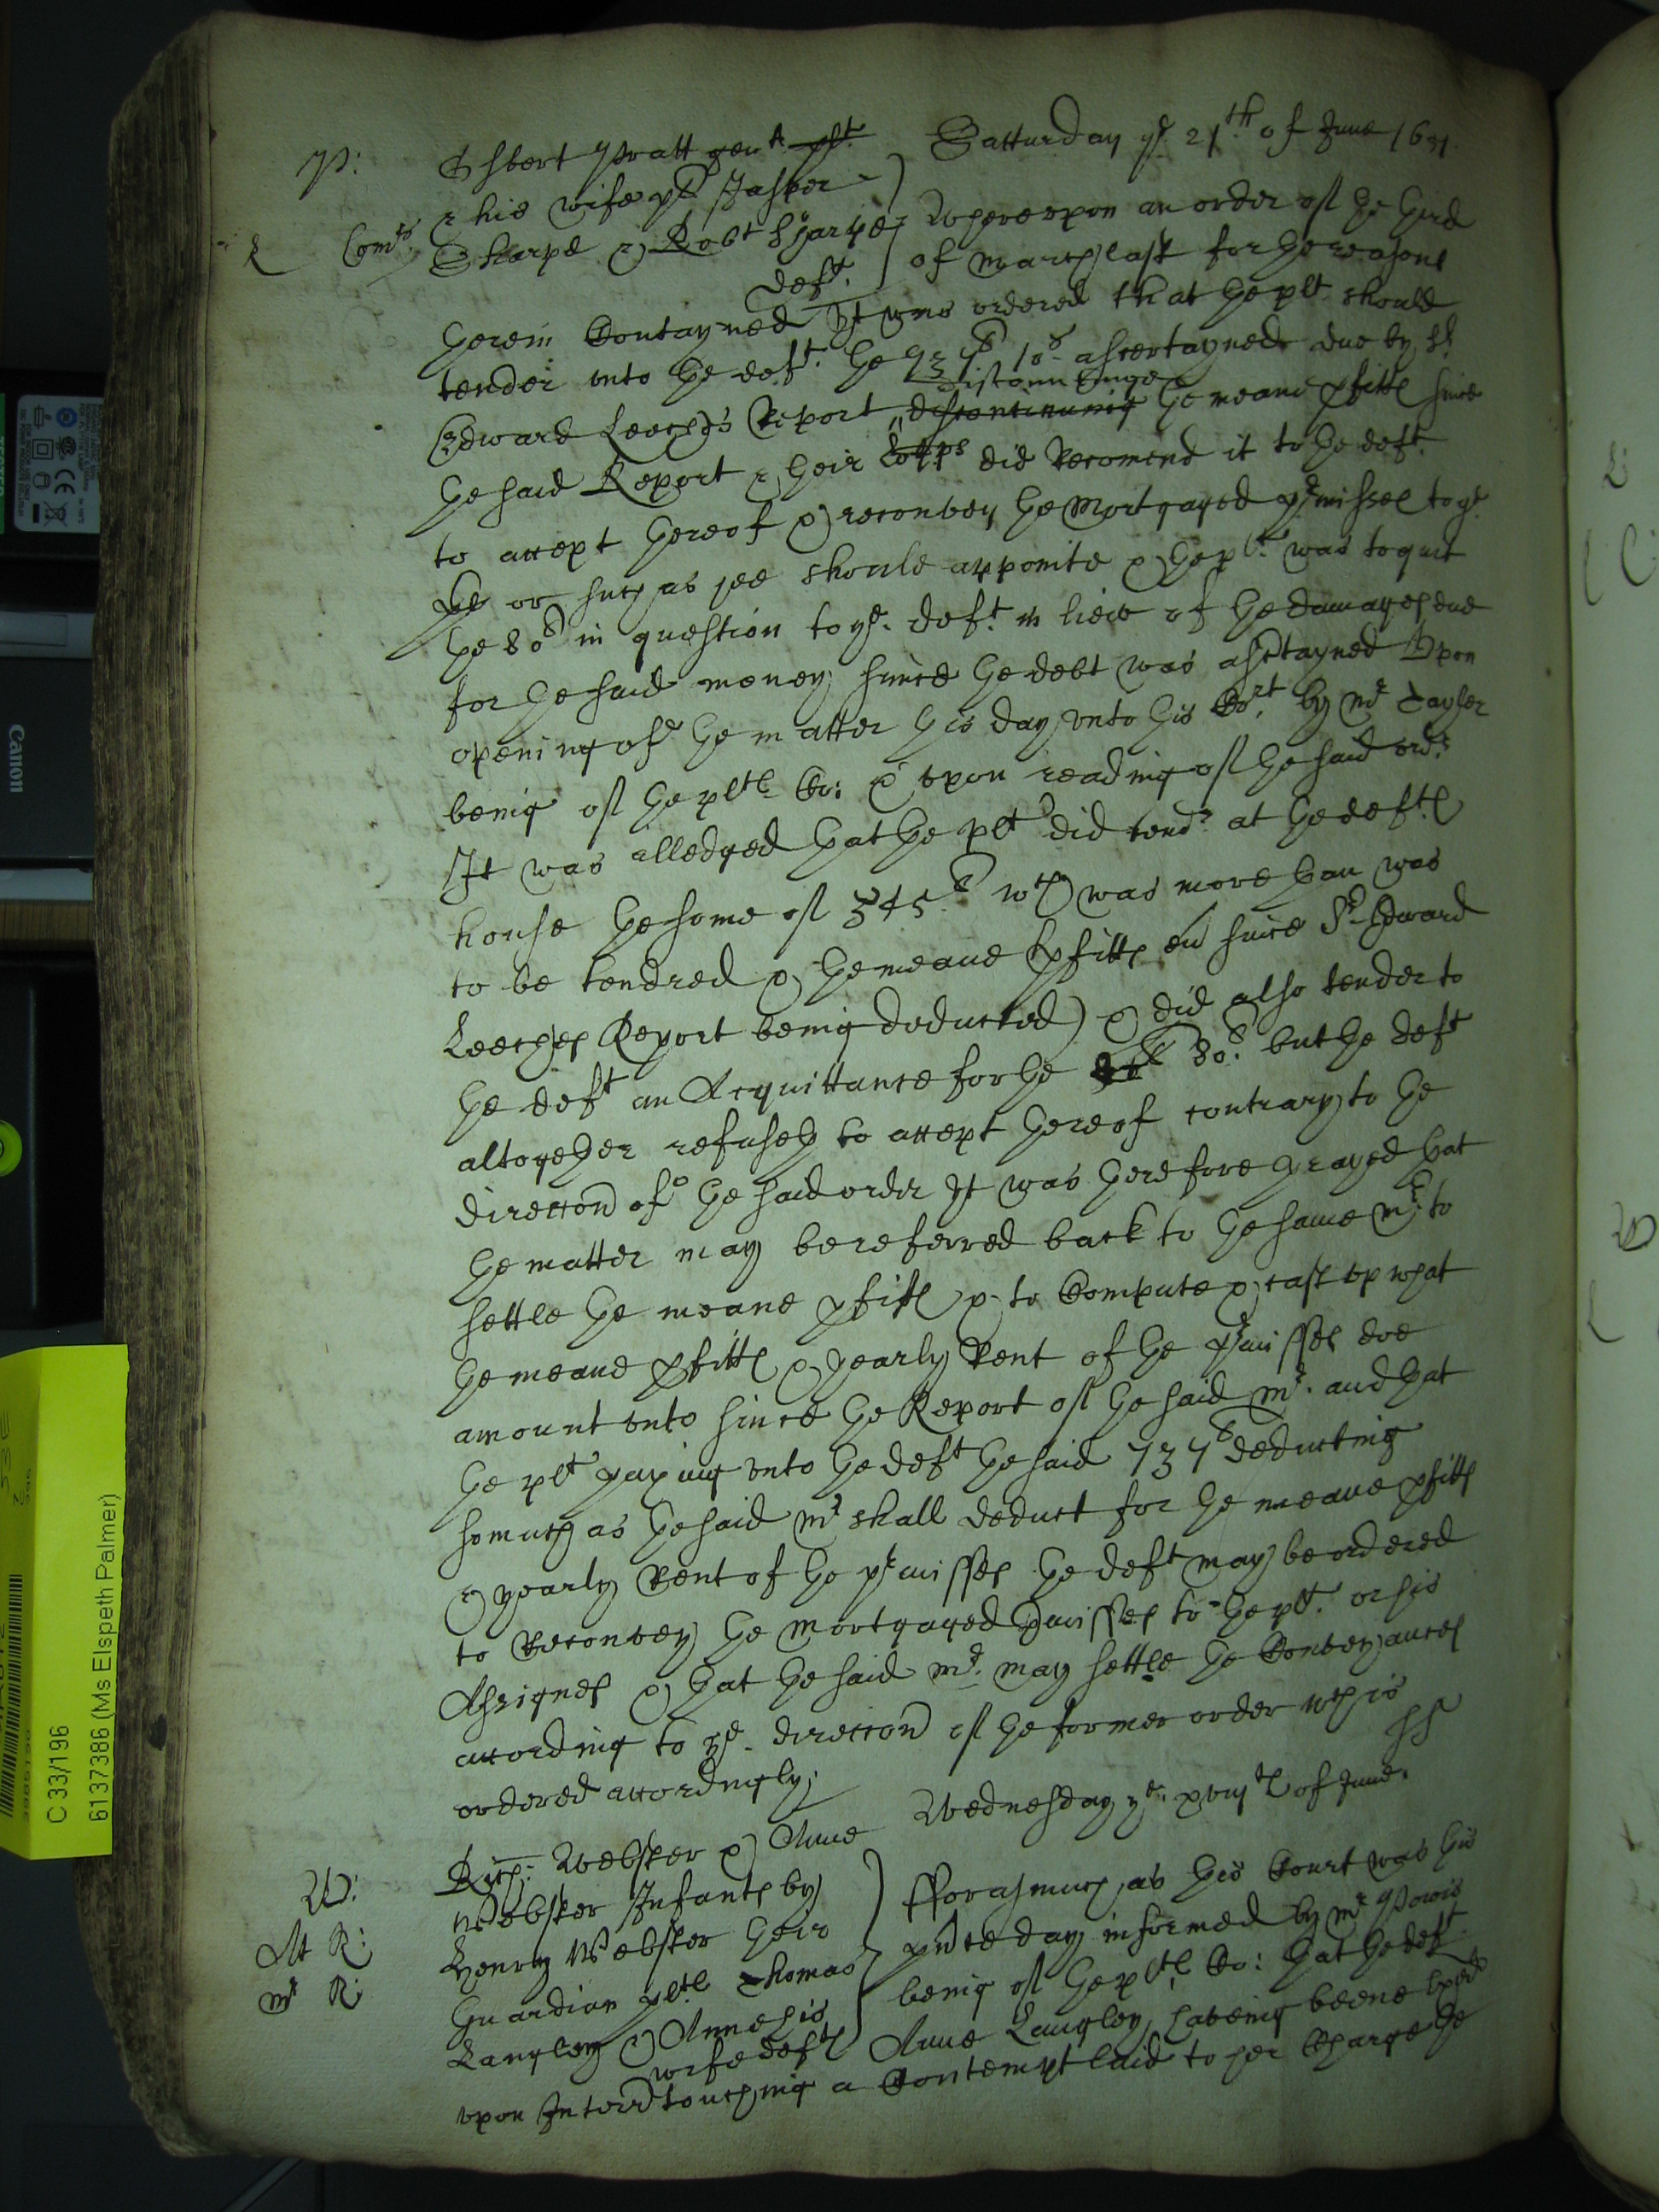 P: Esbert Pratt gen A plt Satturday ye 21th of June 1651
& his wife plt Jasper
R Comts Sharpe & Robt Sharpe Whereupon an order of the third
deft. of March last for the reasons
therein Contayned It was ordered that the plt should
tender unto the deft. the 737li 10s ascertayned due by Sr
Edward Leeches Report discontinuinge discountinge the meane pfitts since
the said Report & their Lopps did Recomend it to the deft.
to accept thereof & reconvey the Mortgaged pmisses to ye
plt or such as hee should appointe & the plt. was to quit
the 80li in question to ye deft. in liew of the damages due
for the said money since the debt was ascertayned Upon
opening of the matter this day unto this Cort by Mr Tayler
being of the plts Co: & upon reading of the said ordr
It was alledged that the plt did tendr at the defts
house the some of 345li wch was more than was
to be tendred & the meane pfitts since Sr Edward
Leeches Report being deducted) & did also tender to
the deft an Acquittance for the 80li but the deft
altogether refuseth to accept thereof contrary to the
direccon of the said order It was therefore prayed that
the matter may be referred back to the same Mr to
settle the meane pfitts & to Compute & cast up what
the meane pfitts & yearly Rent of the pmisses doe
amount unto since the Report of the said Mr. and that
the plt paying unto the deft the said 737li deducting
somuch as the said Mr shall deduct for the meane pfitts
& yearly Rent of the pmisses the deft may be ordered
to Reconvey the Mortgaged pmisses to the plt. or his
Assignes & that the said Mr. may settle the Conveyances
according to ye direccon of the former order wch is
ordered accordingly.
Wednesday ye xviijth of June.
W: Rich: Webster & Anne
Webster Infants by Forasmuch as this Court was this
At R: Henry Webster their psnte day informed by Mr Powis
Mr R: Guardian plts Thomas being of the plts Co: that the deft
Langley & Anne his Anne Langley haveing beene
wife defts
upon Interr touching a Contempt laid to her Charge the
Canon
C 33/196
6137386 (Ms Elspeth Palmer)